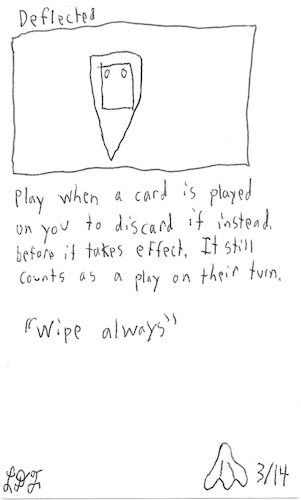 Deflected
Play when a card is played
on you to discard it instead.
before it takes effect. It still
counts as a play on their turn.
"Wipe always"
LDF
3/14